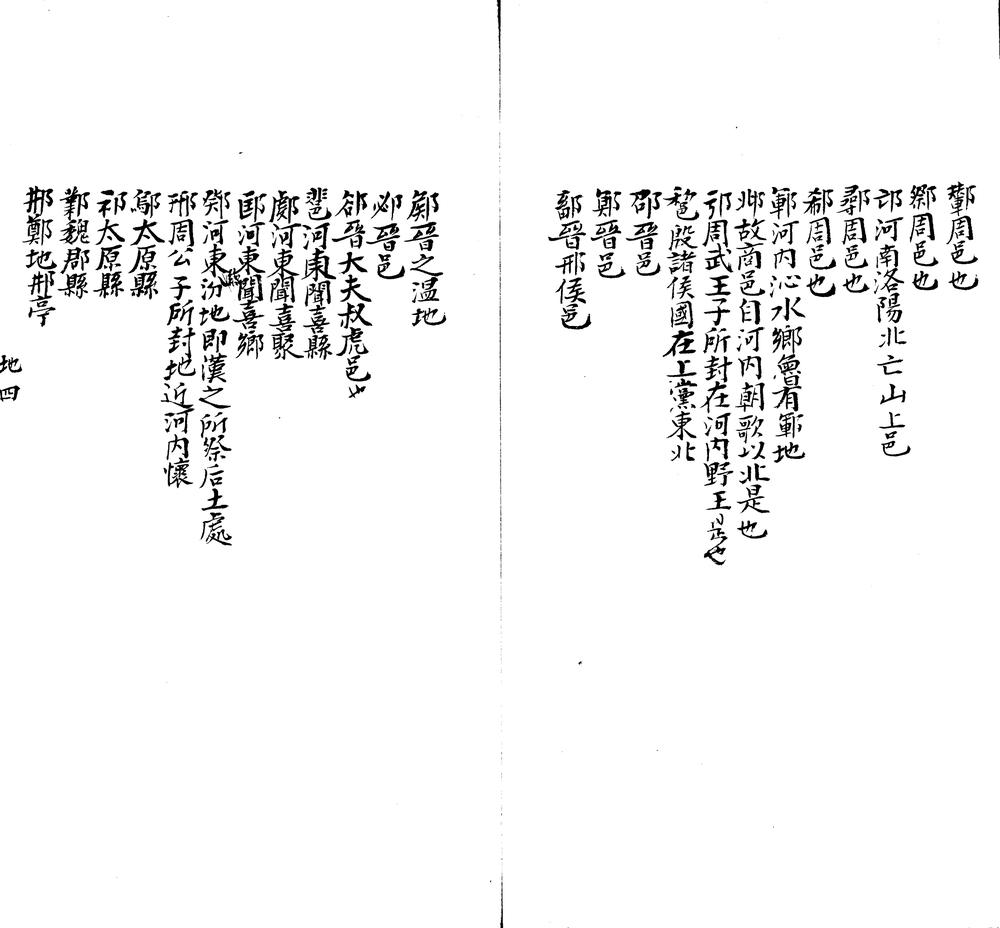 鄻周邑也
鄒周邑也
邙河南洛陽北亡山上邑
鄩周邑也
郗周邑也
鄆河內沁水鄉魯有鄆地
邶故商邑自河內朝歌以北是也
邘周武王子所封在河內野王是也
𨛫殷諸侯國在上黨東北
邵晉邑
鄍晉邑
鄐晉邢侯邑
鄇晉之溫地
邲晉邑
郤晉大夫叔虎邑也
𨛬河東聞喜縣
𨝋河東聞喜聚
𨙻河東聞喜鄉
鄈河東臨汾地即漢之所祭后土處
邢周公子所封地近河內懷
鄔太原縣
祁太原縣
鄴魏郡縣
郱鄭地郱亭
地四